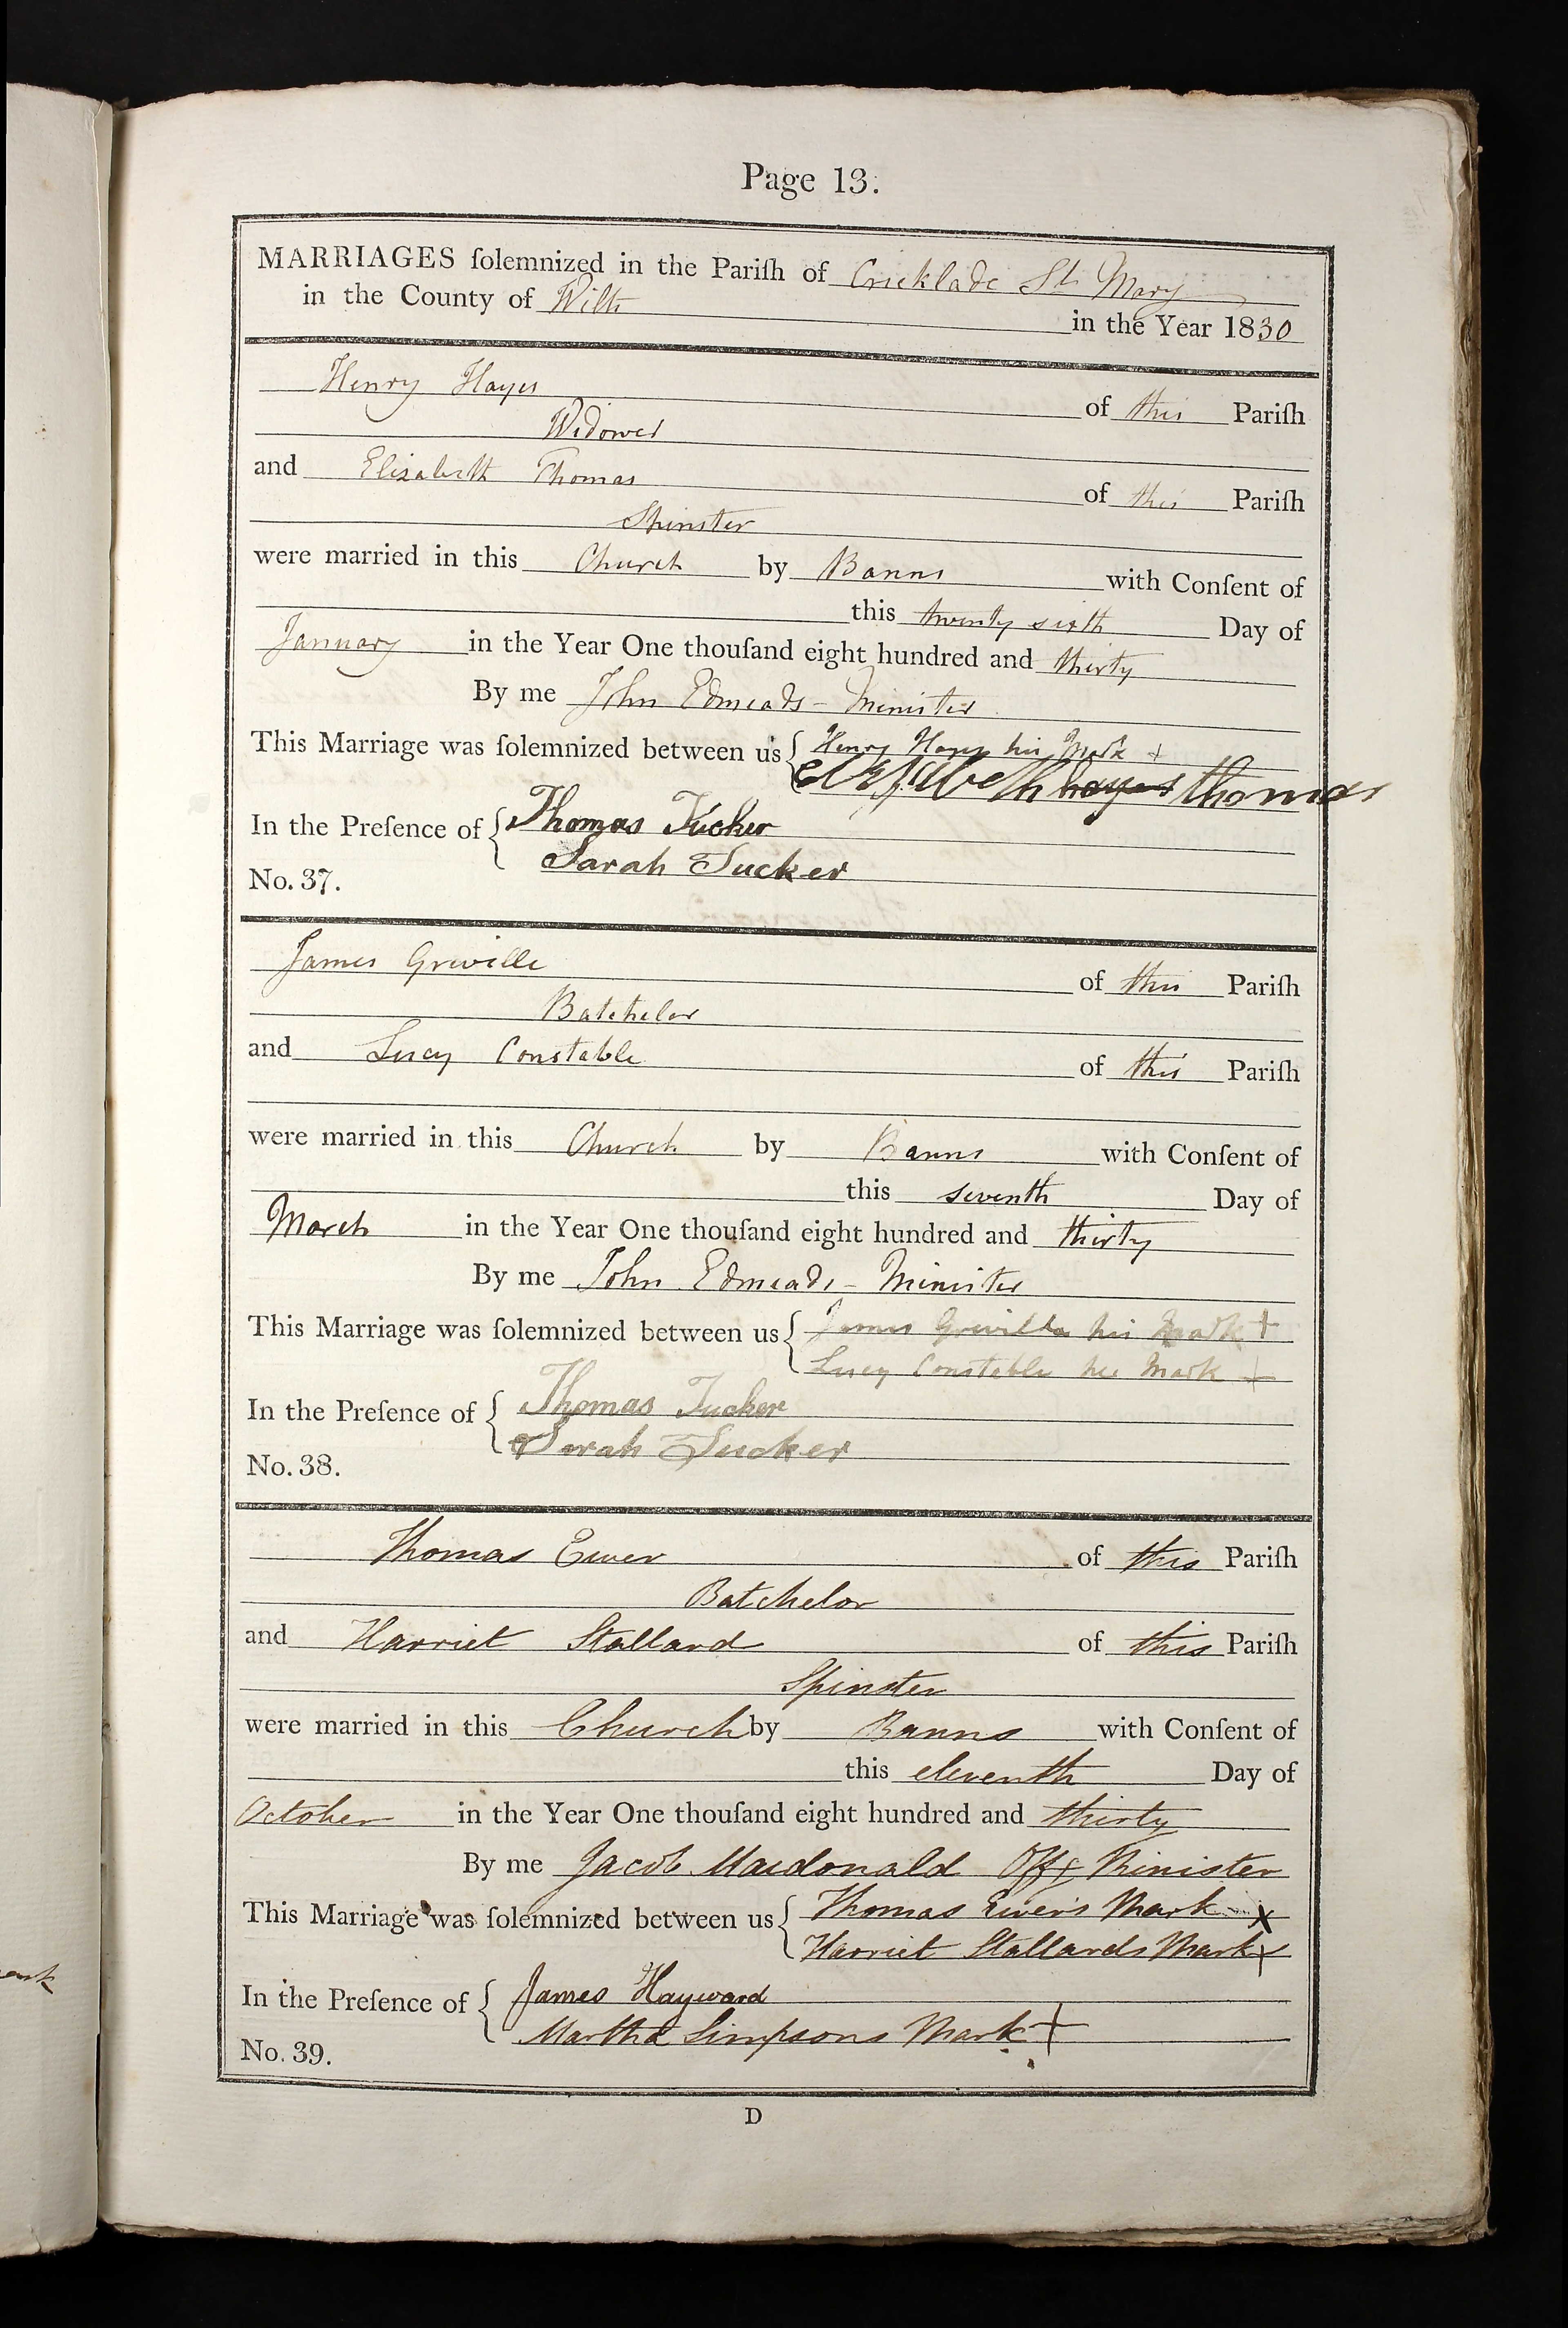 Page 13.
MARRIAGES ſolemnized in the Pariſh of Cricklade St. Mary
in the County of Wilts in the Year 1830
Henry Hayes of this Pariſh
Widower
and Elizabeth Thomas of this Pariſh
Spinster
were married in this Church by Banns with Conſent of
this twenty sixth Day of
January in the Year One thouſand eight hundred and thirty
By me John Edmeads - Minister
This Marriage was ſolemnized between us { Henry Hayes his Mark +
Elizabeth hayes thomas
In the Preſence of { Thomas Tucker
Sarah Tucker
No. 37.
James Greville of this Pariſh
Batchelor
and Lucy Constable of this Pariſh
were married in this Church by Banns with Conſent of
this seventh Day of
March in the Year One thouſand eight hundred and thirty
By me John Edmeads - Minister
This Marriage was ſolemnized between us { James Greville his Mark +
Lucy Constable her Mark +
In the Preſence of { Thomas Tucker
Sarah Tucker
No. 38.
Thomas Ewer of this Pariſh
Batchelor
and Harriet Stallard of this Pariſh
Spinster
were married in this Church by Banns with Conſent of
this eleventh Day of
October in the Year One thouſand eight hundred and thirty
By me Jacob Macdonald Offg Minister
This Marriage was ſolemnized between us { Thomas Ewer's Mark X
Harriet Stallards Mark X
In the Preſence of { James Hayward
Martha Simpsons Mark +
No. 39.
D